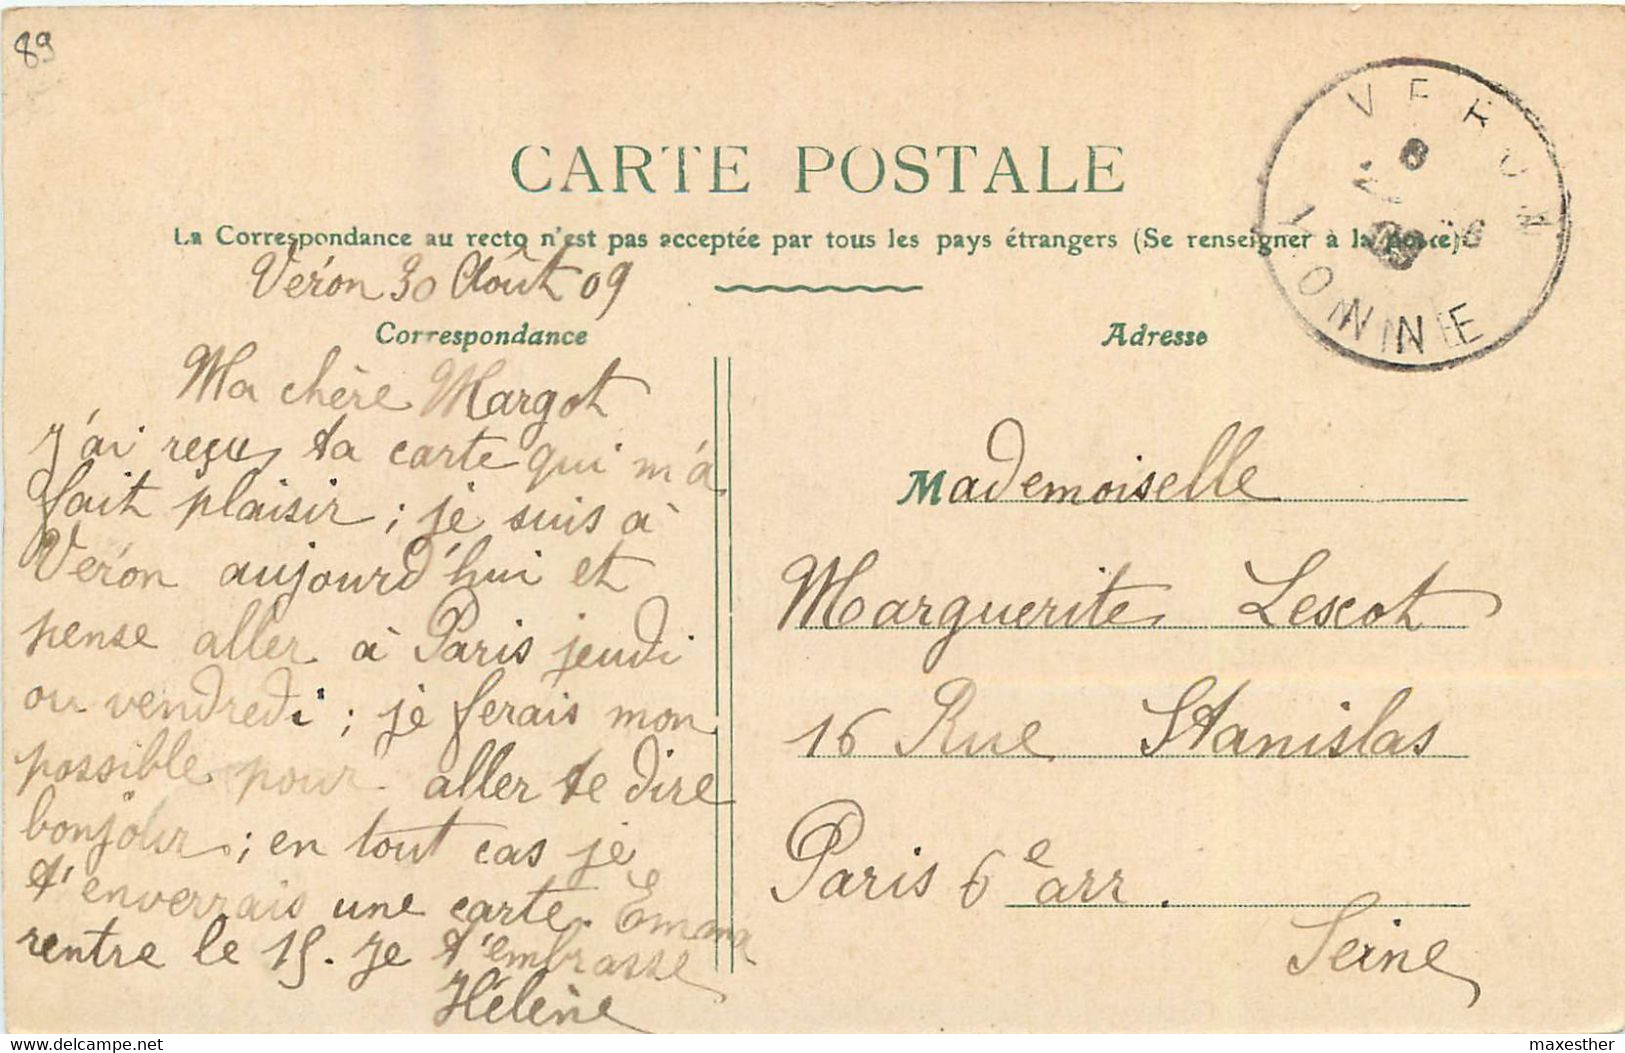 89
CARTE POSTALE
La Correspondance au recto n'est pas acceptée par tous les pays étrangers (Se renseigner à la poste)
VERON
8
09
YONNE
Véron 30 Août 09
Correspondance
Ma chère Margot
J'ai reçu ta carte qui m'a
fait plaisir ; je suis à
Véron aujourd'hui et
pense aller à Paris jeudi
ou vendredi ; je ferais mon
possible pour aller te dire
bonjour ; en tout cas je
t'enverrais une carte.
rentre le 15. Je t'embrasse
Hélène
Adresse
Mademoiselle
Marguerite Lescot
16 Rue Stanislas
Paris 6e arr.
Seine
www.delcampe.net
maxesther